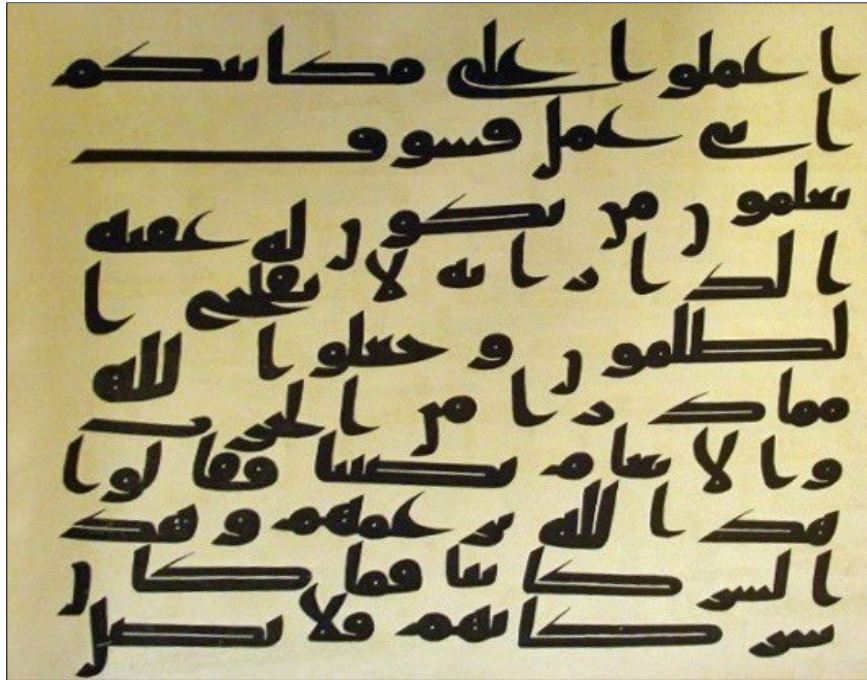 اعملوا على مكانتكم
انى عمل فسوف
تعلمون من تكون له عقبة
الدار انه لا يفلح ا
لظلمون وجعلوا لله
مما ذرا من الحرث
والانعام نصيبا فقالوا
هذا لله بزعمهم وهذ
ا لشركائنا فما كان
لشركائهم فلا يصل